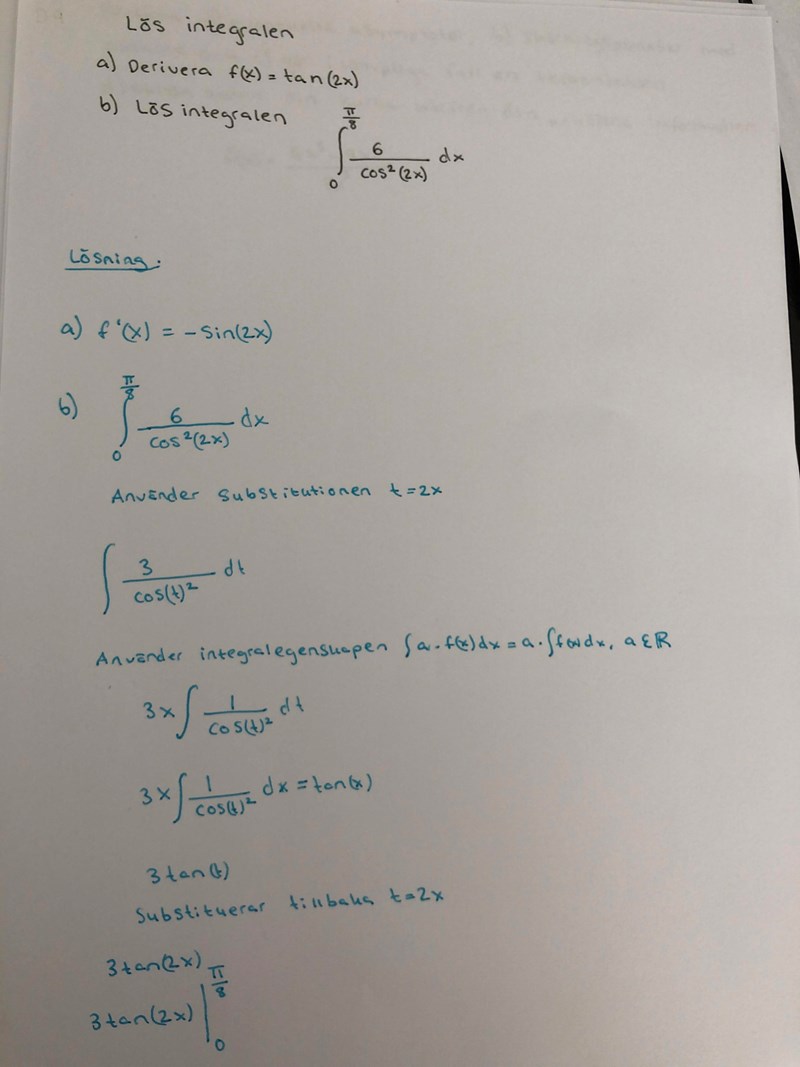 Lös integralen
a) Derivera f(x) = tan(2x)
b) Lös integralen
∫₀^(π/8) 6/cos²(2x) dx
Lösning.
a) f'(x) = -sin(2x)
b) ∫₀^(π/8) 6/cos²(2x) dx
Använder substitutionen t=2x
∫ 3/cos(t)² dt
Använder integralegenskapen ∫a·f(x)dx = a·∫f(x)dx, a∈R
3x∫ 1/cos(t)² dt
3x∫ 1/cos(t)² dx = tan(x)
3tan(t)
Substituerar tillbaka t=2x
3tan(2x)
3tan(2x) |₀^(π/8)